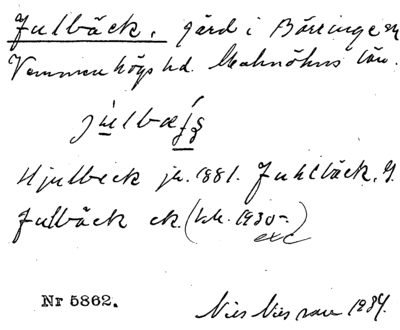 Fulbäck. gård i Börringe sn
Vemmenhögs hd. Malmöhus län.
Hjulbeck jb. 1881. Fuhlbäck. G.
Fulbäck ek. (bbr. 1930-.)
exc
Nr 5862.
Nils Nilsson 1934.